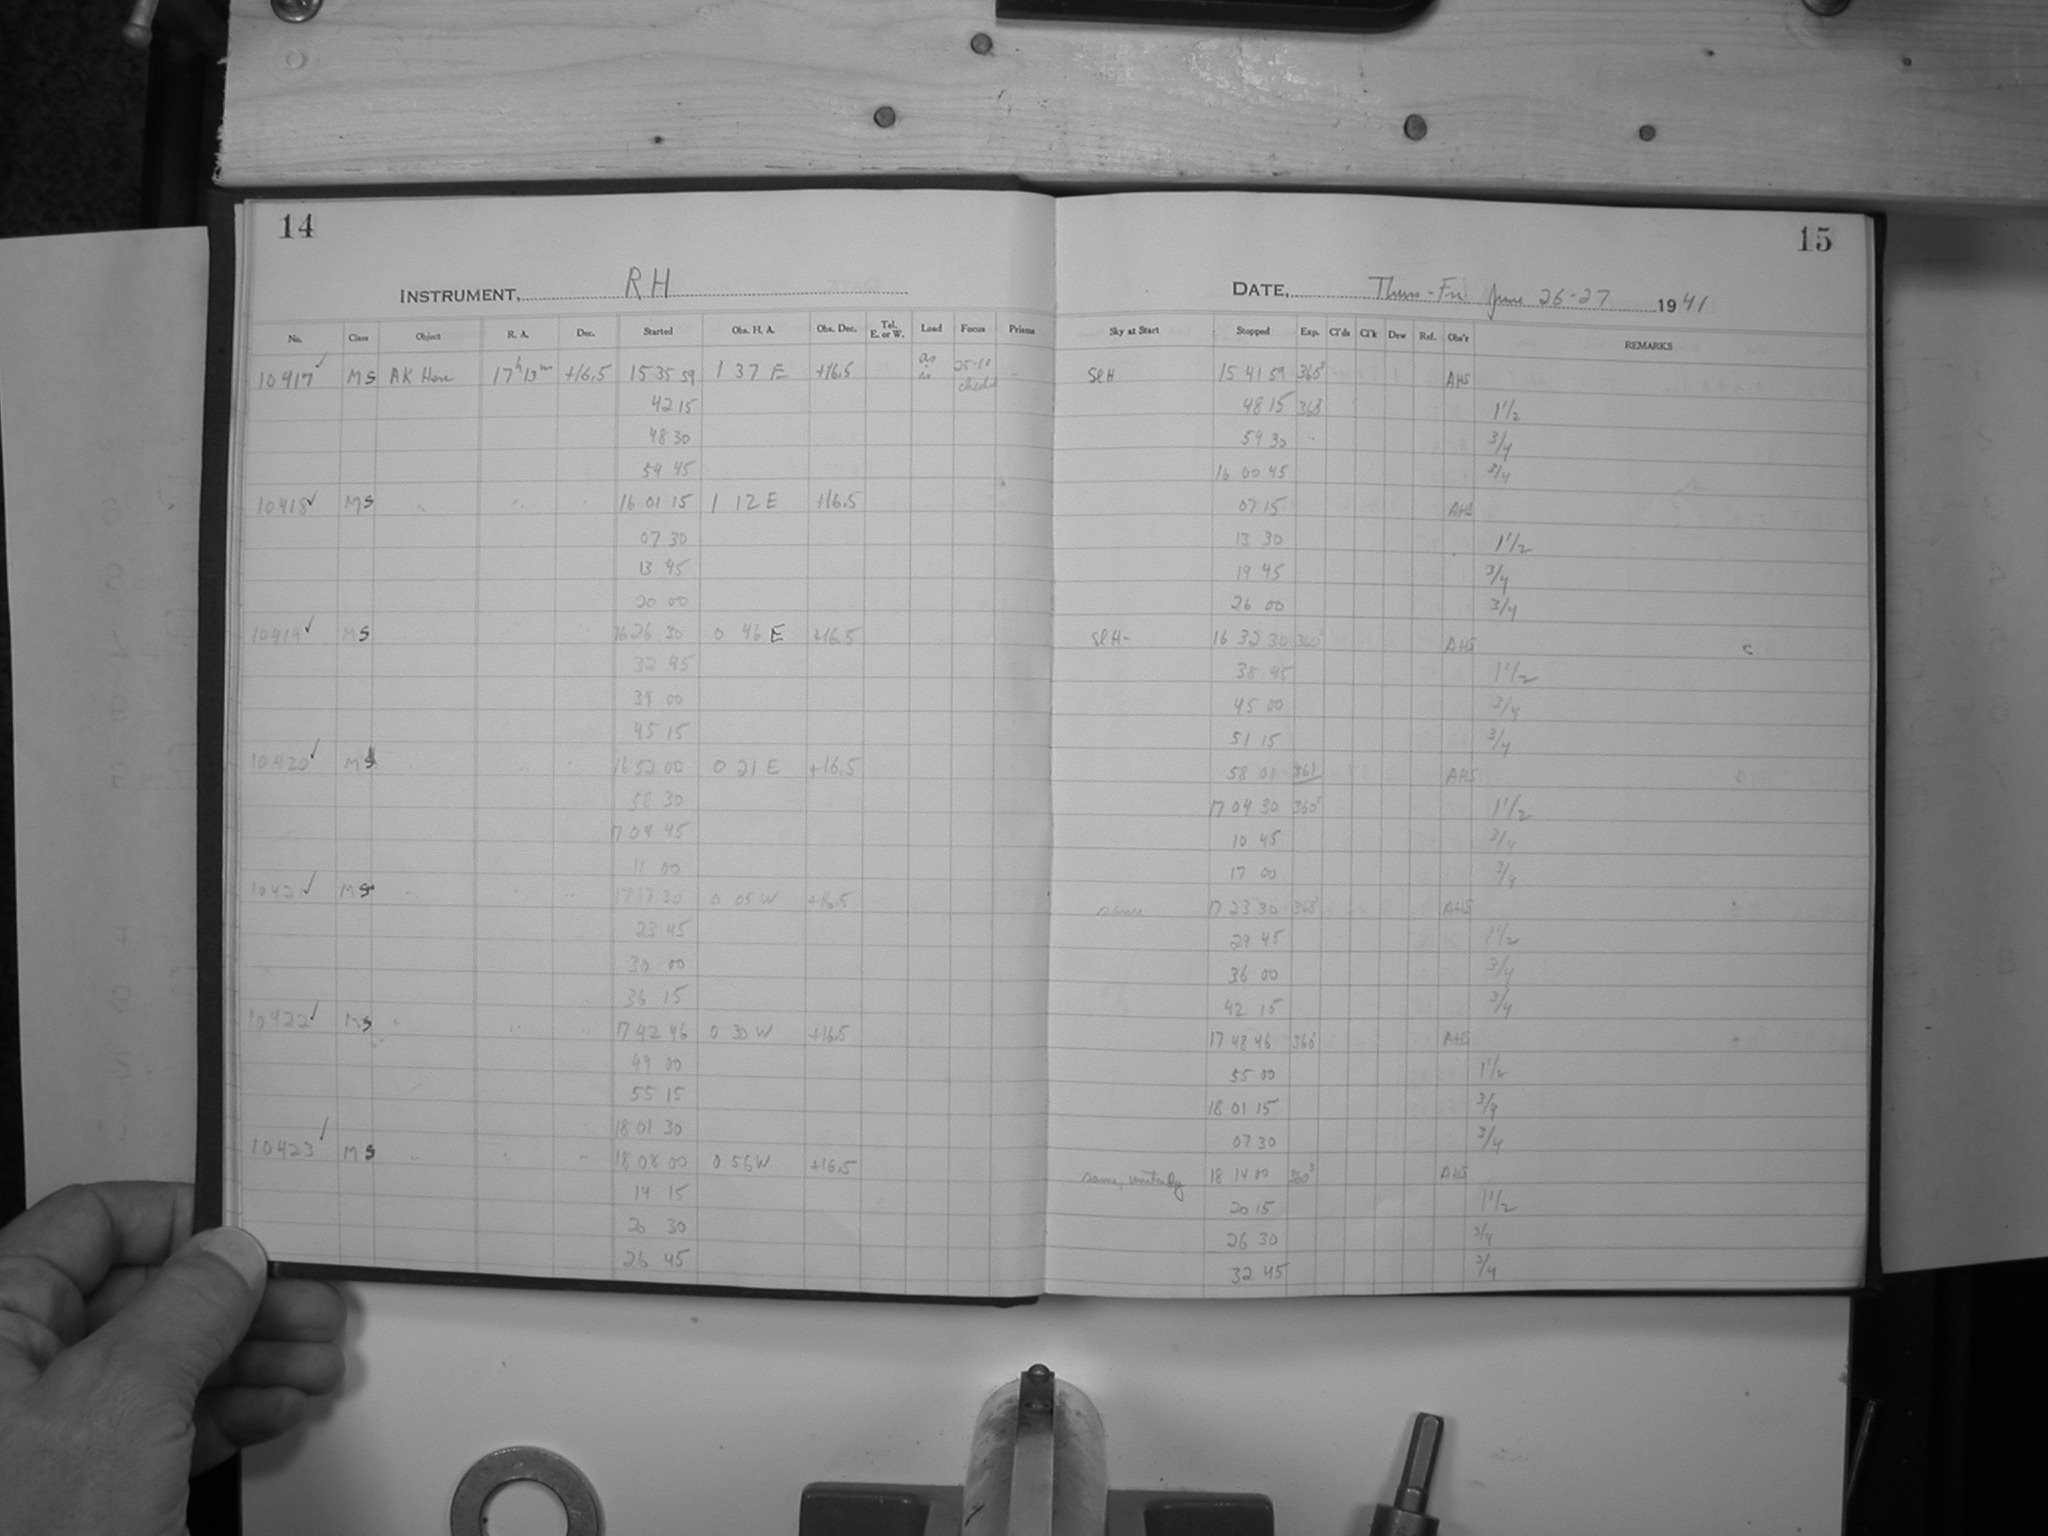 14
INSTRUMENT, RH
No. Class Object R. A. Dec. Started Obs. H. A. Obs. Dec. Tel. E. or W. Load Focus Prisms
10417 ✓ MS AK Herc 17h 13m +16.5 15 35 59 1 37 E +16.5 as is 25-10 checked -
42 15
48 30
54 45
10418 ✓ MS " " " 16 01 15 1 12 E +16.5
07 30
13 45
20 00
10419 ✓ MS 16 26 30 0 46 E +16.5
32 45
39 00
45 15
10420 ✓ MS " " 16 52 00 0 21 E +16.5
58 30
17 04 45
11 00
10421 ✓ MS " " " 17 17 30 0 05 W +16.5
23 45
30 00
36 15
10422 ✓ MS " " " 17 42 46 0 30 W +16.5
49 00
55 15
18 01 30
10423 ✓ MS " " " 18 08 00 0 56 W +16.5
14 15
20 30
26 45
15
DATE, Thurs - Fri June 26-27 1941
Sky at Start Stopped Exp. Cl'ds Cl'k Dew Ref. Obs'r REMARKS
Sl H 15 41 59 360s AHS
48 15 360s 1 1/2
54 30 " 3/4
16 00 45 3/4
07 15 AHS
13 30 1 1/2
19 45 3/4
26 00 3/4
Sl H- 16 32 30 360s AHS
38 45 1 1/2
45 00 3/4
51 15 3/4
58 01 361 AHS
17 04 30 360s 1 1/2
10 45 3/4
17 00 3/4
17 23 30 360s AHS
29 45 1 1/2
36 00 3/4
42 15 3/4
17 48 46 360s AHS
55 00 1 1/2
18 01 15 3/4
07 30 3/4
same, 18 14 00 360s AHS
20 15 1 1/2
26 30 3/4
32 45 3/4